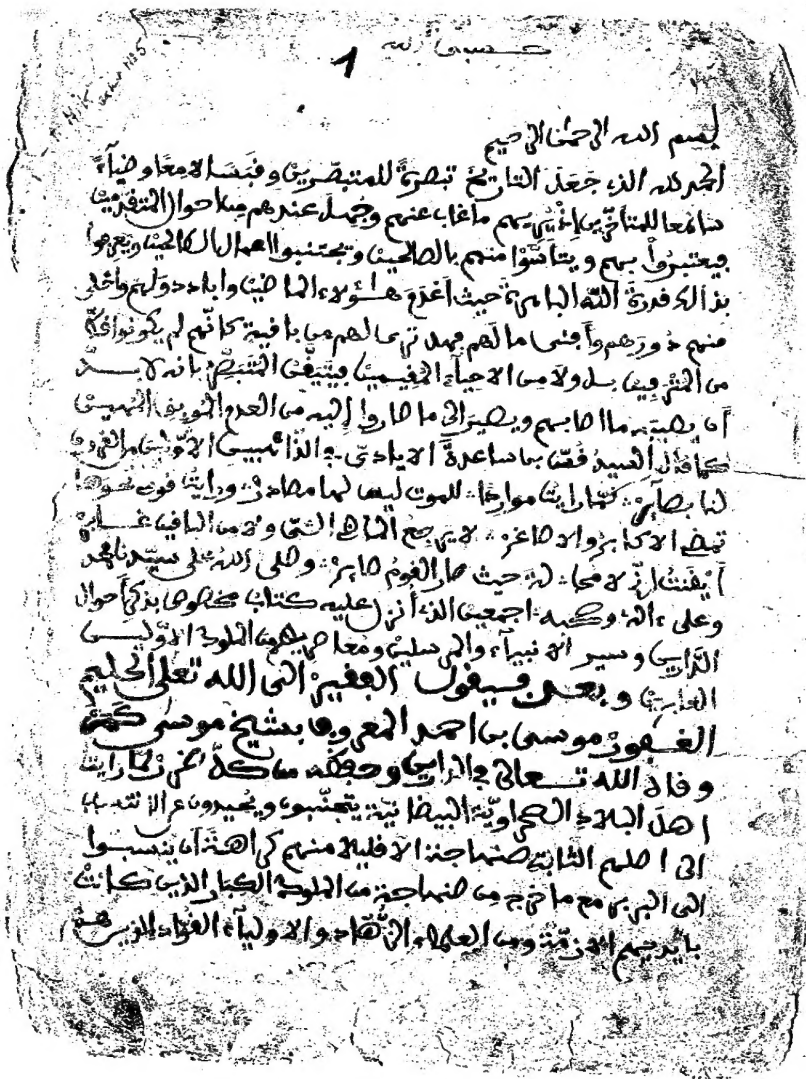 1
بسم الله الرحمن الرحيم
الحمد لله الذي جعل التاريخ تبصرة للمتبصرين وقبسا لامعا وضياء
ساطعا للمتأخرين يريهم ما غاب عنهم وجهل عندهم من احوال المتقدمين
فيعتبروا بهم ويتأسّوا منهم بالصالحين وتجتنبوا اعمال الطالحين ويعرفوا
بذالك قدرة الله الباهرة حيث أعدم هؤلاء الماضين واباد دولهم وأخلى
منهم دورهم وأفنى مالهم فهل ترى لهم من باقية كأنّهم لم يكونوا
من المترفين بل ولا من الاحياء المقيمين فيتيقّن المتبصّر بانه لا بدّ
أن يصيبه ما اصابهم ويصير الى ما صاروا إليه من العدم
كما قال السيد قسّ بن ساعدة الايادى في الذّاهبين الاوّلين من القرون
لنا بصاير لمّا رايت مواردا للموت ليس لها مصادر ورايت قومى نحوها
تمضى الاكابر والاصاغر لا يرجع الماضى إلىّ ولا من الباقين غابر
أيقنت أنّى لا محالة حيث صار القوم صاير وصلى الله على سيّدنا محمد
وعلى ءاله وصحبه اجمعين الذى أنزل عليه كتاب مخصوص بذكر أحوال
الدّارين وسير الانبياء والمرسلين ومعاصريهم من الملوك الاوّلين
الغابرين وبعد فيقول الفقير الى الله تعلى الحليم
الغفور موسى بن احمد المعروف بشيخ موسى كمر
وقاه الله تعالى في الدارين وحفظه من كلّ لما رايت
اهل البلاد الصحراويّة البيضانيّة يتجنّبون ويحيدون عن الانتساب
الى اصلهم الثابت صنهاجة الا قليلا منهم كراهة أن ينسبوا
الى البربر مع ما خرج من صنهاجة من الملوك الكبار الذين كانت
بأيديهم الازمّة ومن العلماء الزّهّاد والاولياء الذين هم